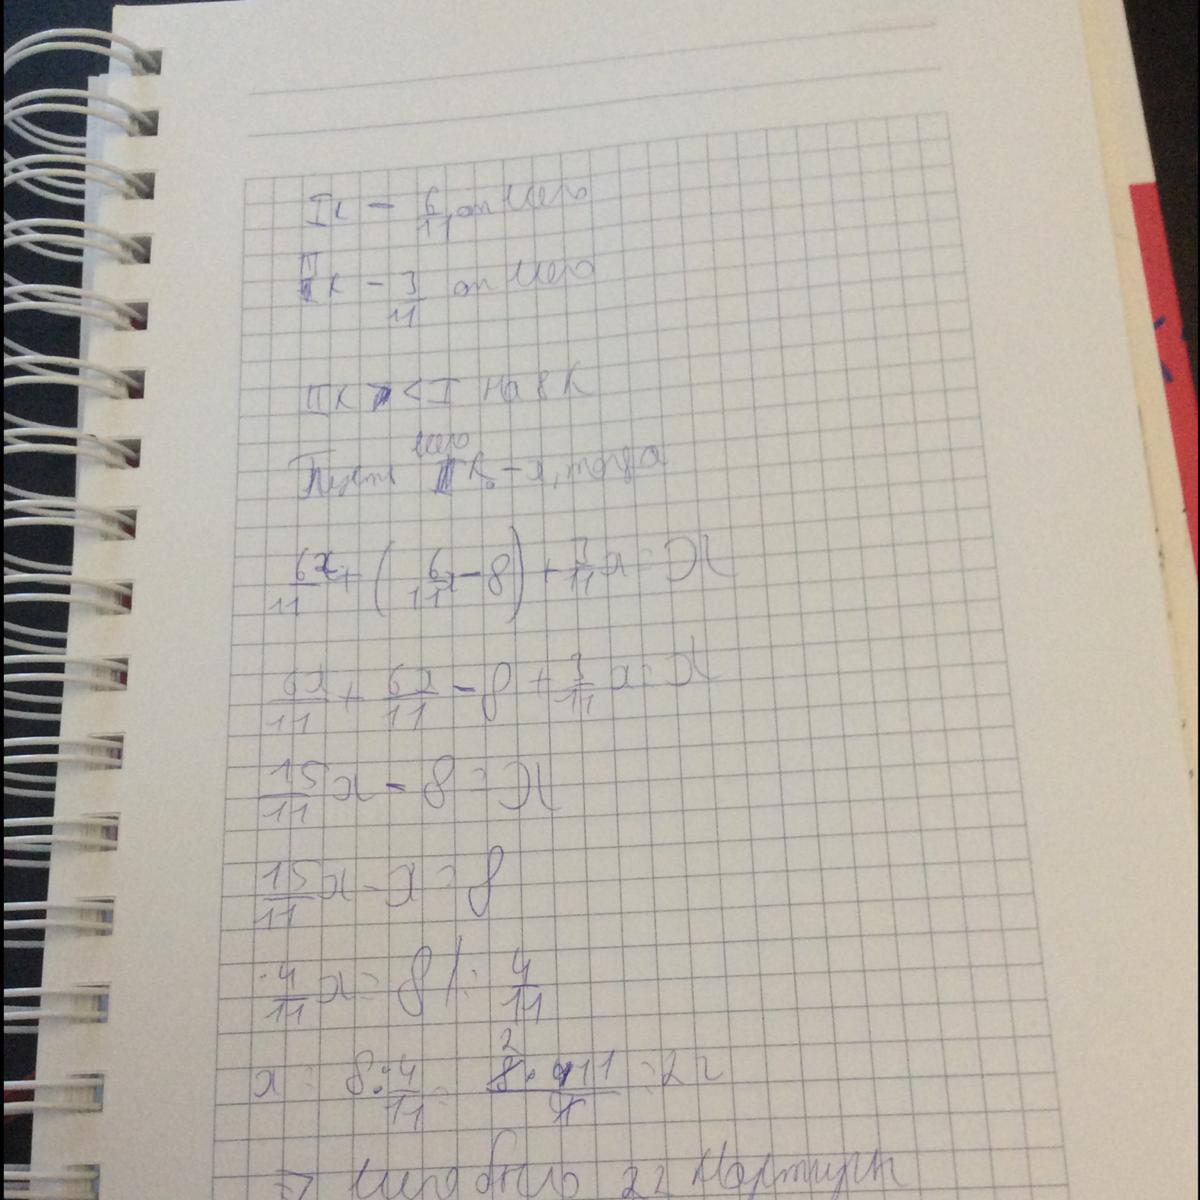 Iк - 6/11 от него
IIк - 3/11 от него
IIк < I на 8 к
Пусть него к. - x, тогда
6x/11 + (6/11x - 8) + 3/11x = x
6x/11 + 6x/11 - 8 + 3/11x = x
15/11x - 8 = x
15/11x - x = 8
4/11x = 8 | : 4/11
x = 8 : 4/11 = 8 · 11/4 = 22
=> было 22